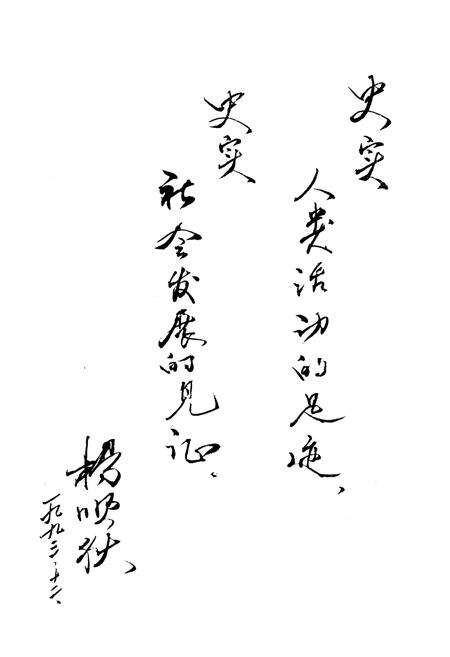 史实
人类活动的足迹、
史实
社会发展的见证。
杨顺狄、
一九九三.十二、